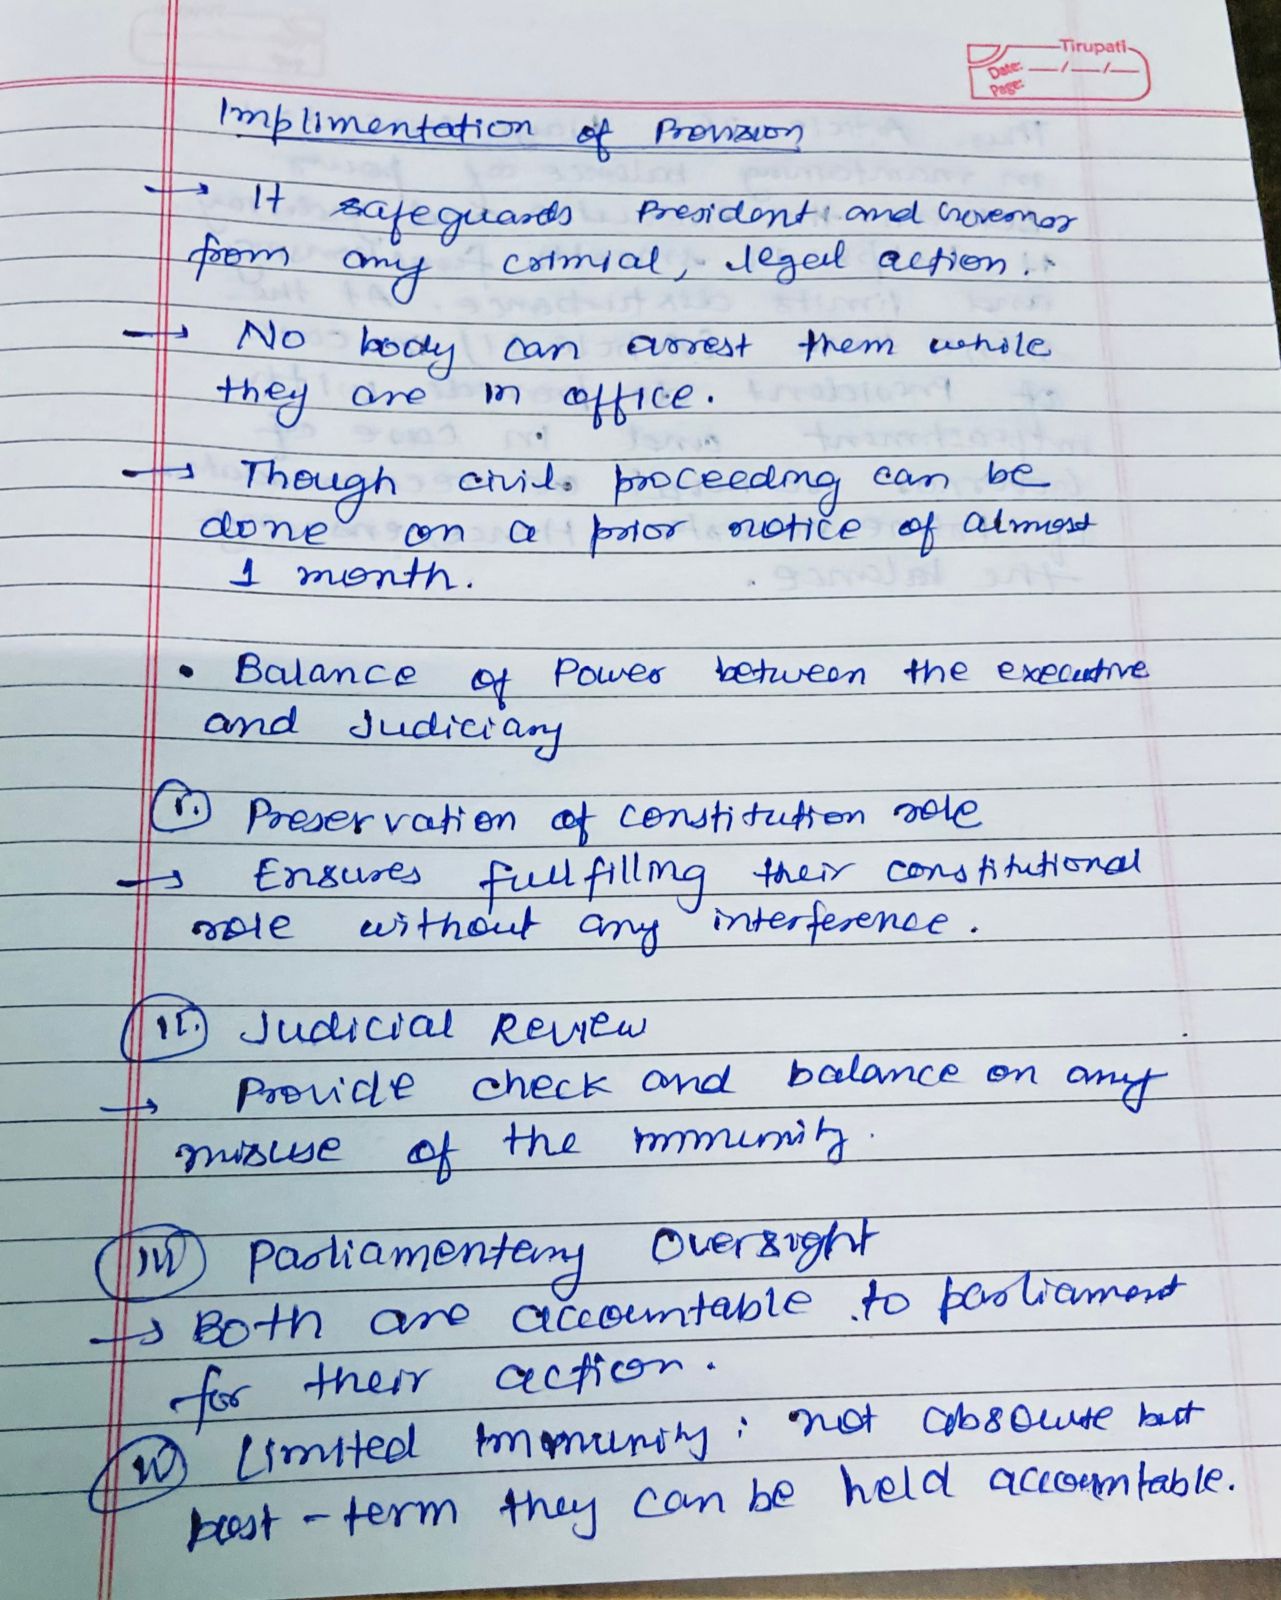 Tirupati
Date: __/__/__
Page:
Implimentation of Provision
→ It safeguards President and Governor
from any crimial, legal action.
→ No body can arrest them while
they are in office.
→ Though civil proceeding can be
done on a prior notice of almost
1 month.
• Balance of Power between the executive
and Judiciary
i. Preservation of constitution role
→ Ensures fullfilling their constitutional
role without any interference.
ii. Judicial Review
→ Provide check and balance on any
misuse of the immunity.
iii) Parliamentary Oversight
→ Both are accountable to parliament
for their action.
iv) Limited Immunity : not absolute but
post-term they can be held accountable.